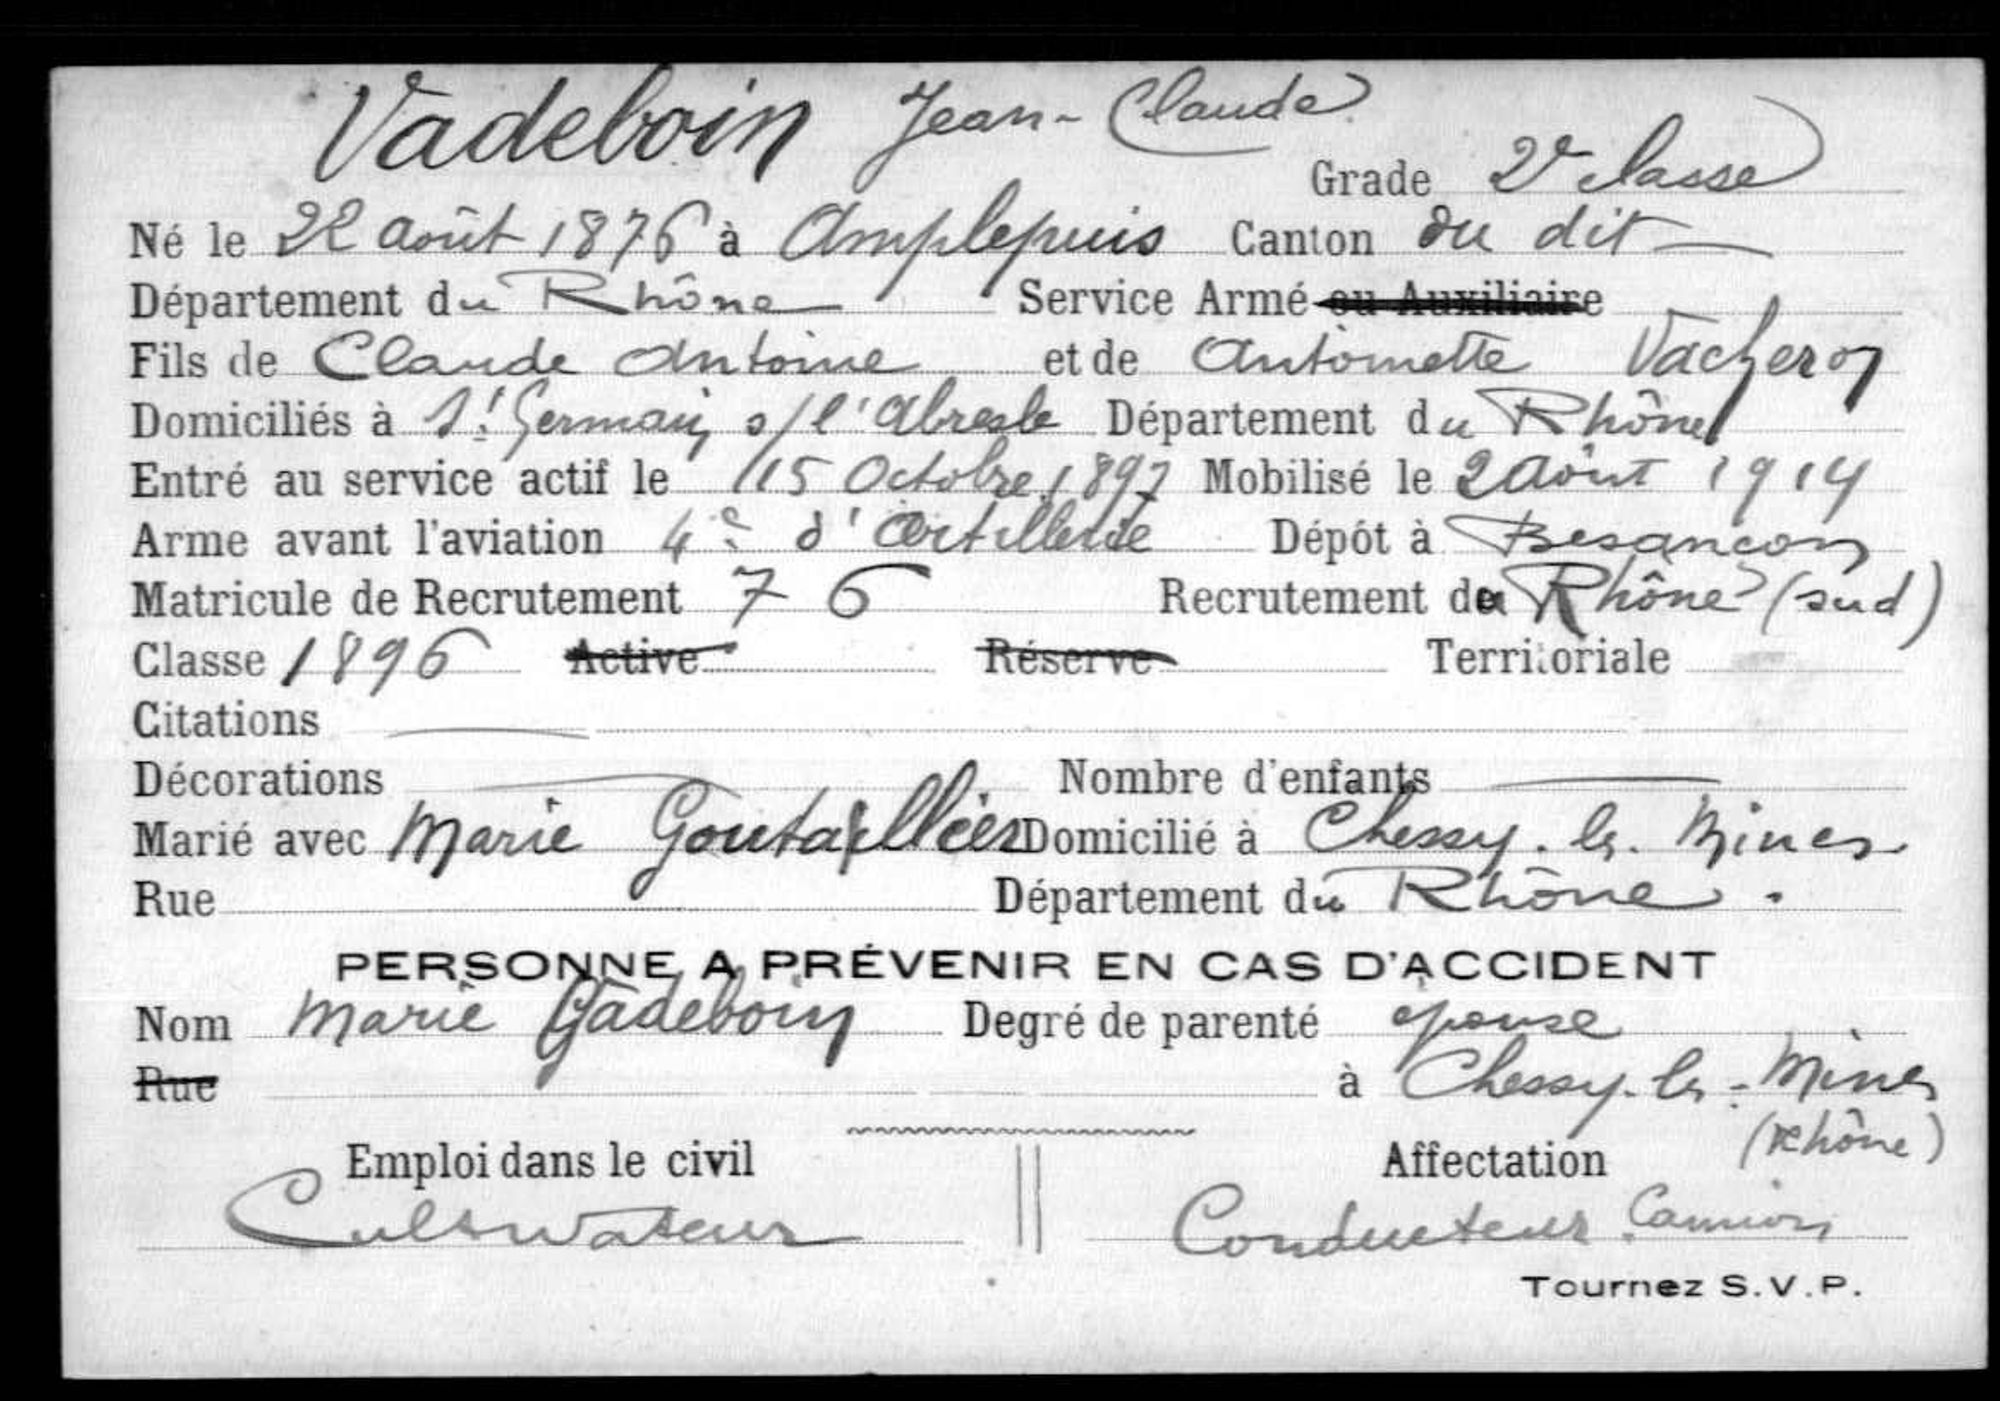 Vadeboin Jean-Claude
Grade 2e classe
Né le 22 août 1876 à Amplepuis Canton du dit
Département du Rhône Service Armé ou Auxiliaire
Fils de Claude Antoine et de Antoinette Vacheron
Domiciliés à St Germain s/l'Abresle Département du Rhône
Entré au service actif le 15 Octobre 1897 Mobilisé le 2 Août 1914
Arme avant l'aviation 4e d'Artillerie Dépôt à Besançon
Matricule de Recrutement 76 Recrutement du Rhône (sud)
Classe 1896 Active Réserve Territoriale
Citations
Décorations Nombre d'enfants
Marié avec Marie Domicilié à Chessy-les-Mines
Rue Département du Rhône.
PERSONNE A PRÉVENIR EN CAS D'ACCIDENT
Nom Marie Vadeboin Degré de parenté épouse
Rue à Chessy-les-Mines
(Rhône)
Emploi dans le civil Affectation
Cultivateur Conducteur Camion
Tournez S.V.P.